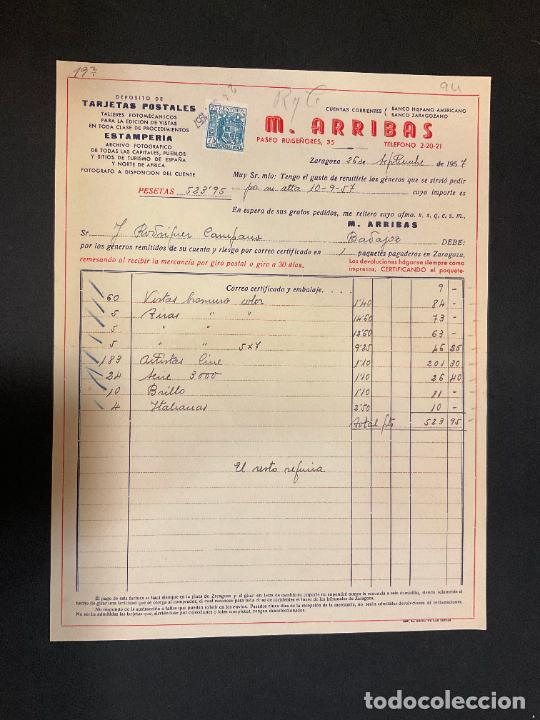 19
94
R y C
DEPOSITO DE
TARJETAS POSTALES
TALLERES FOTOMECANICOS
PARA LA EDICION DE VISTAS
EN TODA CLASE DE PROCEDIMIENTOS
ESTAMPERIA
ARCHIVO FOTOGRAFICO
DE TODAS LAS CAPITALES, PUEBLOS
Y SITIOS DE TURISMO DE ESPAÑA
Y NORTE DE AFRICA
FOTOGRAFO A DISPOSICION DEL CLIENTE
CUENTAS CORRIENTES
BANCO HISPANO AMERICANO
BANCO ZARAGOZANO
M. ARRIBAS
PASEO RUISEÑORES, 35 TELEFONO 2-20-21
Zaragoza 26 de septiembre de 1957
Muy Sr. mío: Tengo el gusto de remitirle los géneros que se sirvió pedir
por su atta 10-9-57 cuyo importe es
PESETAS 523'95
En espera de sus gratos pedidos, me reitero suyo afmo. s. s. q. e. s. m.,
M. ARRIBAS
Sr. J Rodriguez Campano Badajoz DEBE:
por los géneros remitidos de su cuenta y riesgo por correo certificado en 1 paquetes pagaderos en Zaragoza,
remesando al recibir la mercancía por giro postal o giro a 30 días.
Las devoluciones háganse siempre como
impresos, CERTIFICANDO el paquete.
Correo certificado y embalaje. . . . 9 -
60 Vistas bromuro color 1'40 84 -
5 Tiras " " 14'60 73 -
5 " " 12'60 63 -
5 " " 5x7 9'25 46 25
183 Artistas Cine 1'10 201 30
24 Serie 3000 1'10 26 40
10 Brillo 1'10 11 -
4 Italianas 2'50 10 -
Total pts 523 95
El resto
todocoleccion